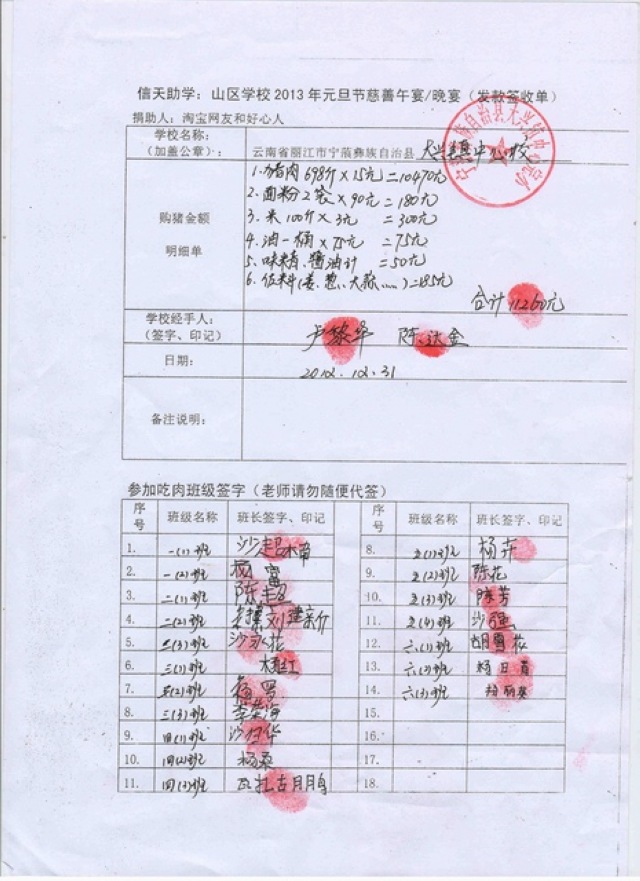 信天助学：山区学校2013年元旦节慈善午宴/晚宴（发款签收单）
捐助人：淘宝网友和好心人
学校名称：
（加盖公章）：
云南省丽江市宁蒗彝族自治县 大兴镇中心校
购猪金额
明细单
1.猪肉 698斤×15元=10470元
2.面粉2袋×90元=180元
3.米100斤×3元=300元
4.油一桶×75元=75元
5.味精、酱油计=50元
6.佐料(姜、葱、大蒜……)=185元
合计11260元
学校经手人：
（签字、印记）
卢黎华 陈达金
日期：
2012.12.31
备注说明：
参加吃肉班级签字（老师请勿随便代签）
序号 班级名称 班长签字、印记 序号 班级名称 班长签字、印记
1. 一(1)班 沙超
8. 五(1)班 杨卉
2. 一(2)班 杨富
9. 五(2)班 陈花
3. 二(1)班 陈超
10. 五(3)班 陈芳
4. 二(2)班
11. 五(4)班 沙强
5. 二(3)班 沙永花
12. 六(1)班 胡雪花
6. 三(1)班
13. 六(2)班 杨日
7. 三(2)班
14. 六(3)班 杨丽英
8. 三(3)班 李荣海
15.
9. 四(1)班 沙
16.
10. 四(2)班 杨
17.
11. 四(3)班 瓦扎古月鹏
18.